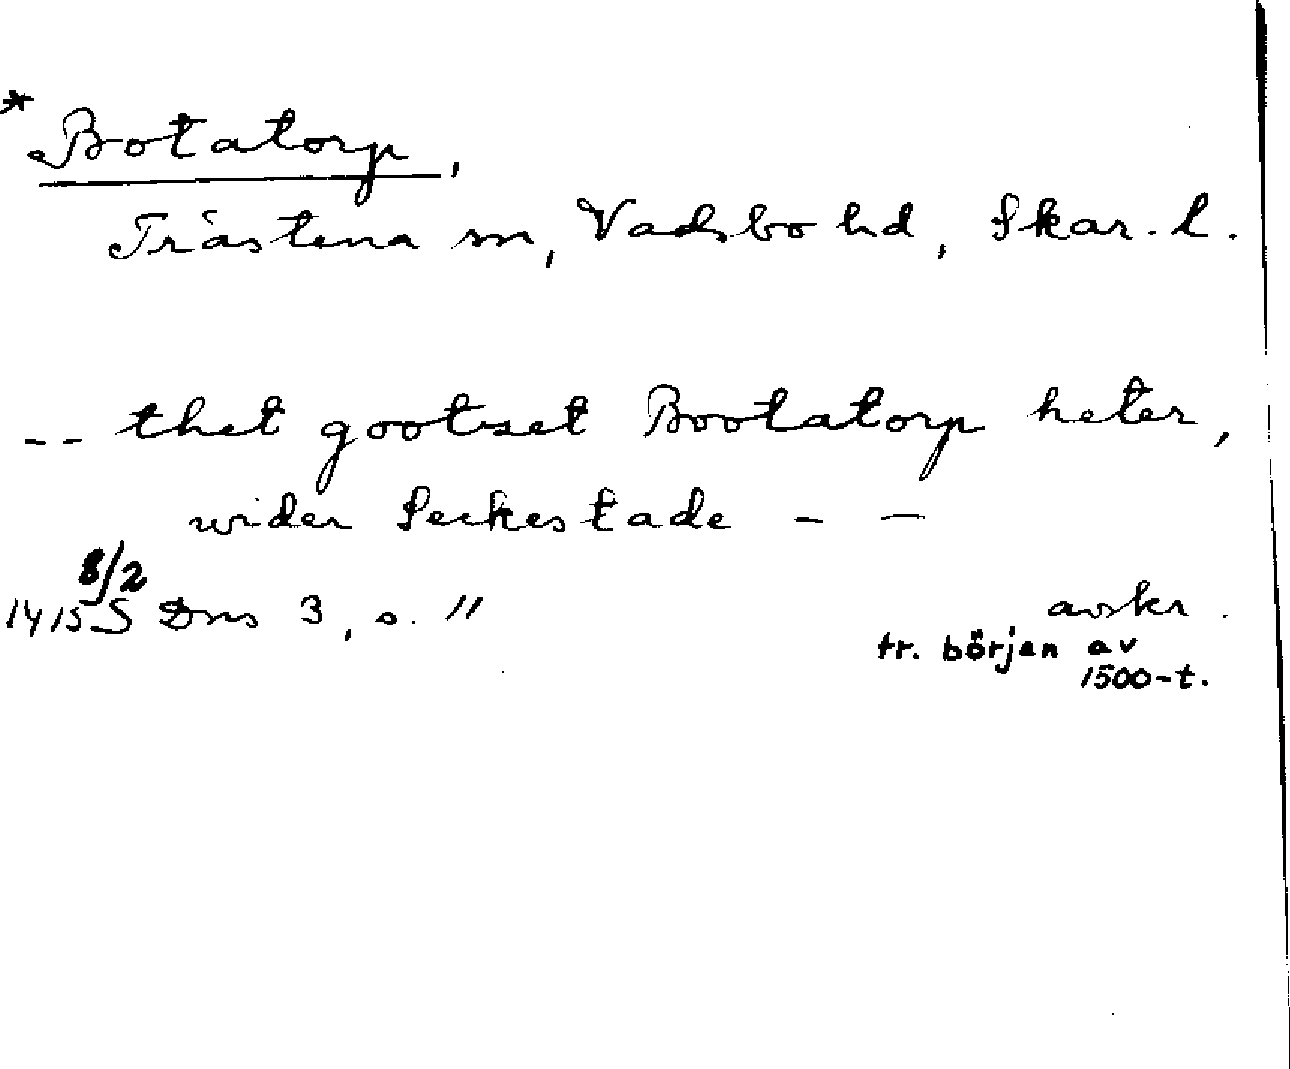 * Botatorp,
Tråstena sn, Vadsbo hd, Skar. l.
-- thet gootset Bootatorp heter,
wider Seckestade - -
8/2
1415 S Dns 3, s. 11 avskr.
tr. början av
1500-t.